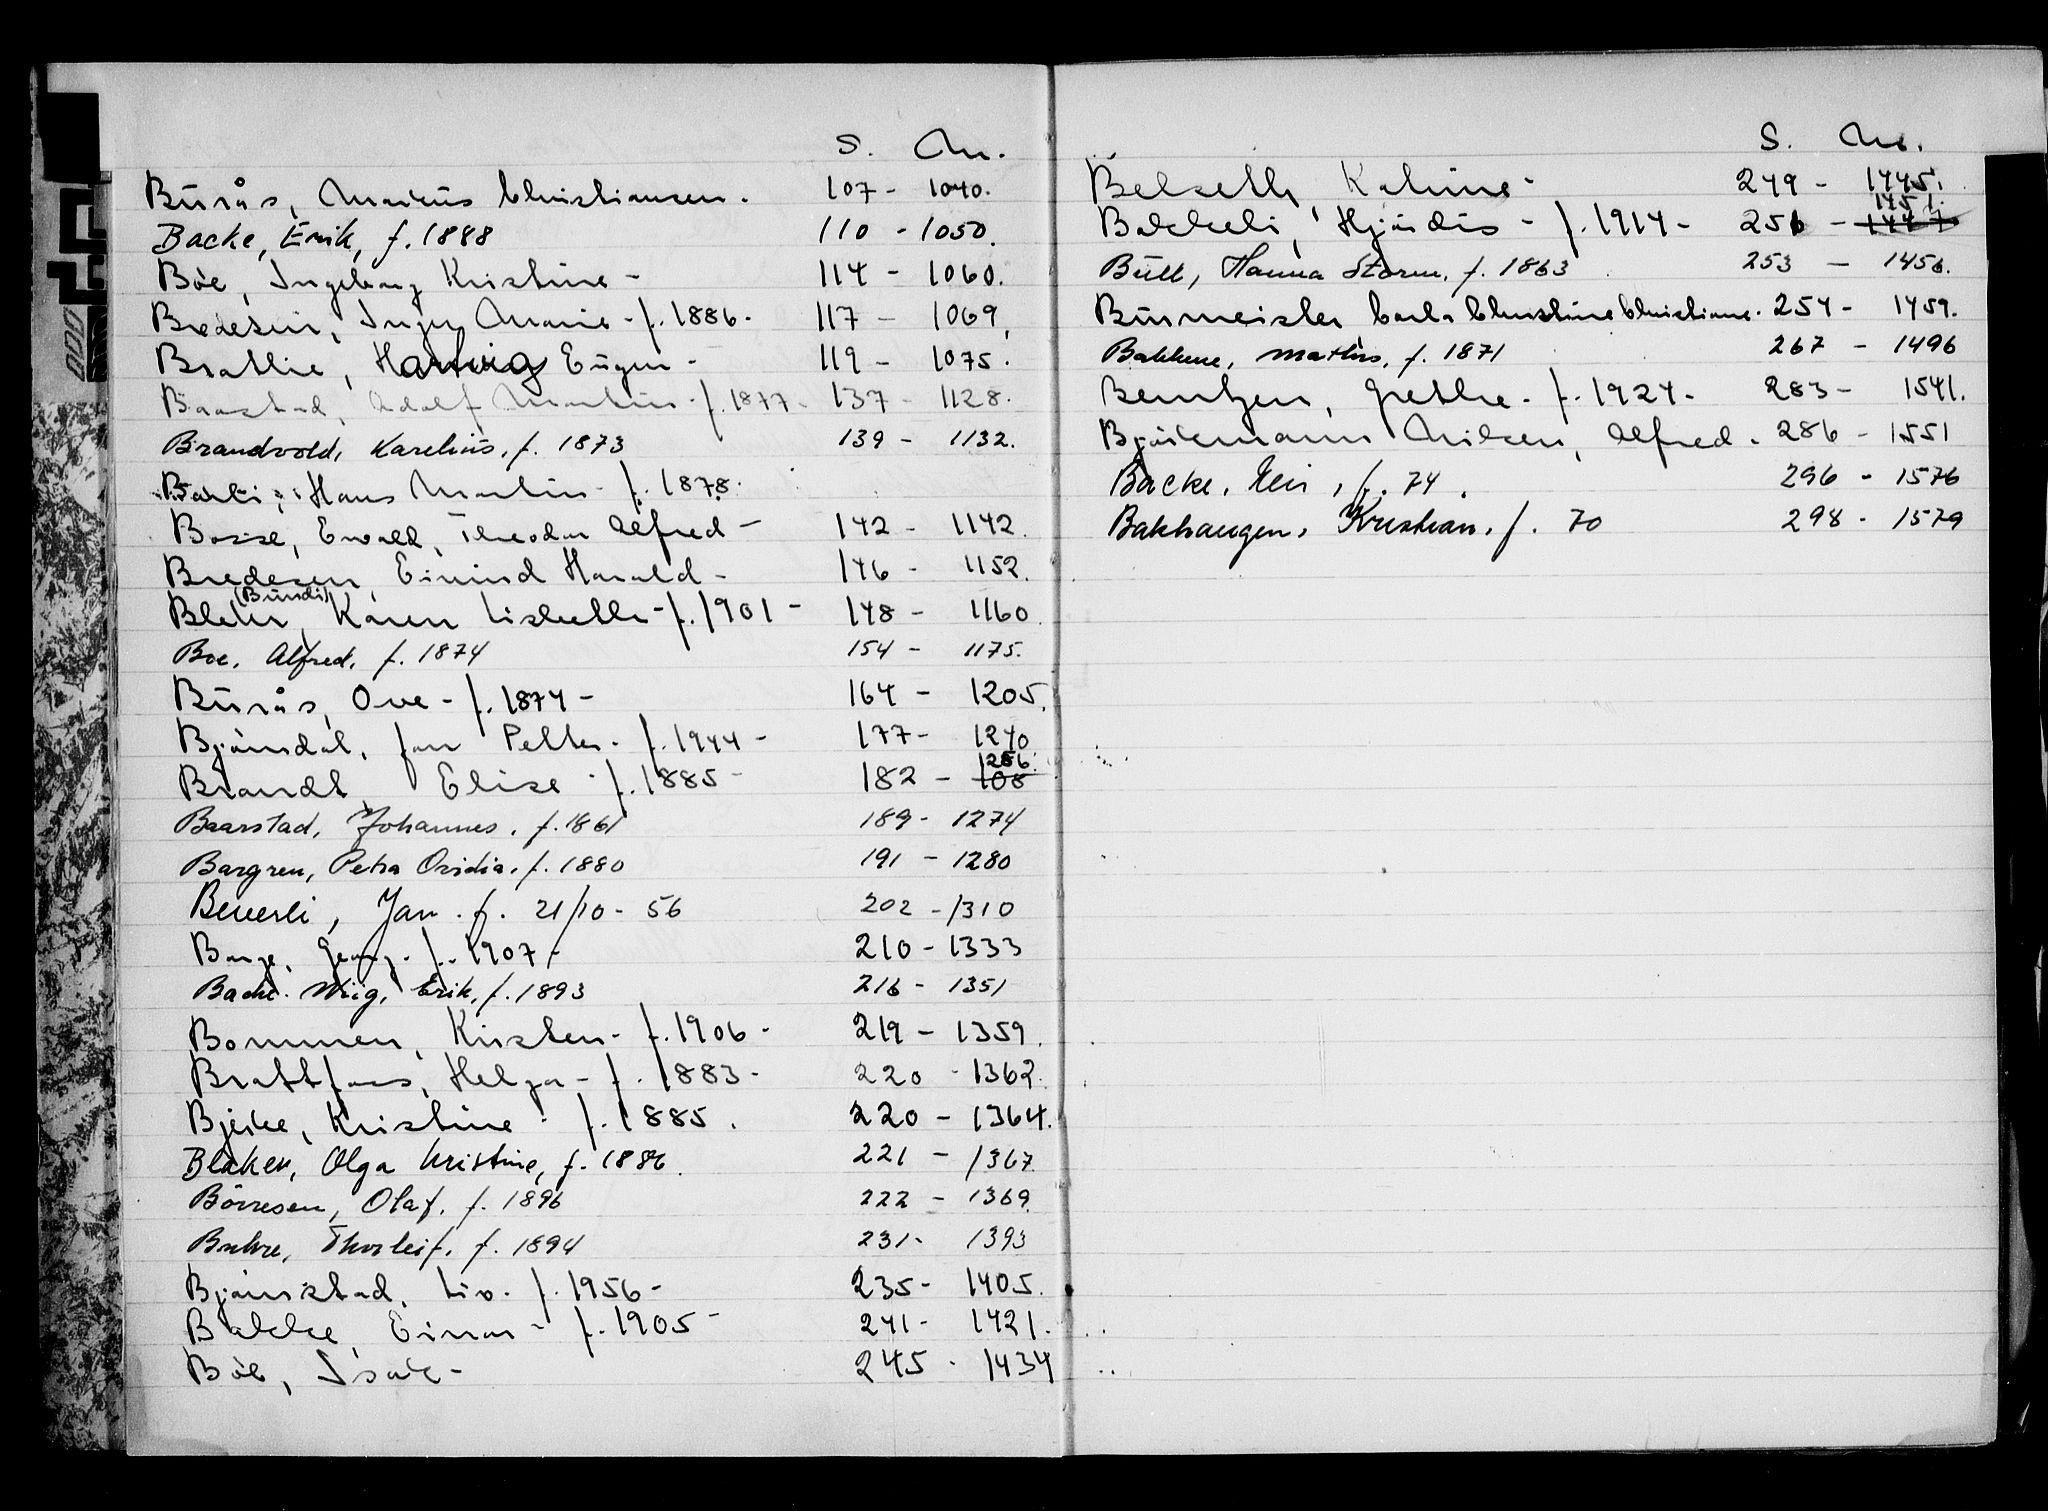 S. Nr.
Burås, Markus Christiansen. 107 - 1040.
Backe, Erik, f. 1888 110 - 1050.
Böe, Ingeborg Kristine - 114 - 1060.
Bredesen, Inger Marie - f. 1886 - 117 - 1069,
Bratlie, Hartvig Eugen - 119 - 1075.
Baastad, Adolf Martin - f. 1877 - 137 - 1128.
Brandvold, Karelius, f. 1873 139 - 1132.
Hans Martin - f. 1878.
Bosse, Ewald, Theodor Alfred - 142 - 1142.
Bredesen, Eivind Harald - 146 - 1152.
(Bundi)
Blehr, Karen Lisbeth - f. 1901 - 148 - 1160.
Boe, Alfred, f. 1874 154 - 1175.
Burås, Ove - f. 1874 - 164 - 1205.
Bjørndal, Jan Petter - f. 1944 - 177 - 1240
1256.
Brandt Elise - f. 1885 - 182 - 108
Baarstad, Johannes, f. 1861 189 - 1274
Bargren, Petra Ovidia, f. 1880 191 - 1280
Beverli, Jan. f. 21/10 - 56 202 - 1310
Georg - f. 1907 - 210 - 1333
Bache-Wiig, Erik, f. 1893 216 - 1351
Bommen, Kirsten - f. 1906 - 219 - 1359.
Brattfoss, Helga - f. 1883 - 220 - 1362.
Bjerke, Kristine - f. 1885. 220 - 1364.
Blaker, Olga Kristine, f. 1886. 221 - 1367.
Börresen, Olaf, f. 1896 222 - 1369.
Buhre, Thorleif, f. 1894 231 - 1393
Bjørnstad, Liv - f. 1956 - 235 - 1405.
Bakke, Einar - f. 1905 - 241 - 1421.
Böe, Isak - 245 - 1434
S. Nr.
Belseth, Katrine - 249 - 1445.
1451.
Bakkeli, Hjørdis - f. 1914 - 251 - 1447
Bull, Hanna Storm, f. 1863 253 - 1456.
Burmeister Carla Christine Christiane. 254 - 1459.
Bakkene, Mathis, f. 1871 267 - 1496
Berntzen, Grethe - f. 1924 - 283 - 1541.
Bjørkmann Nilsen, Alfred. 286 - 1551
Backe, f. 74. 296 - 1576
Bakhaugen, Kristian, f. 70 298 - 1579